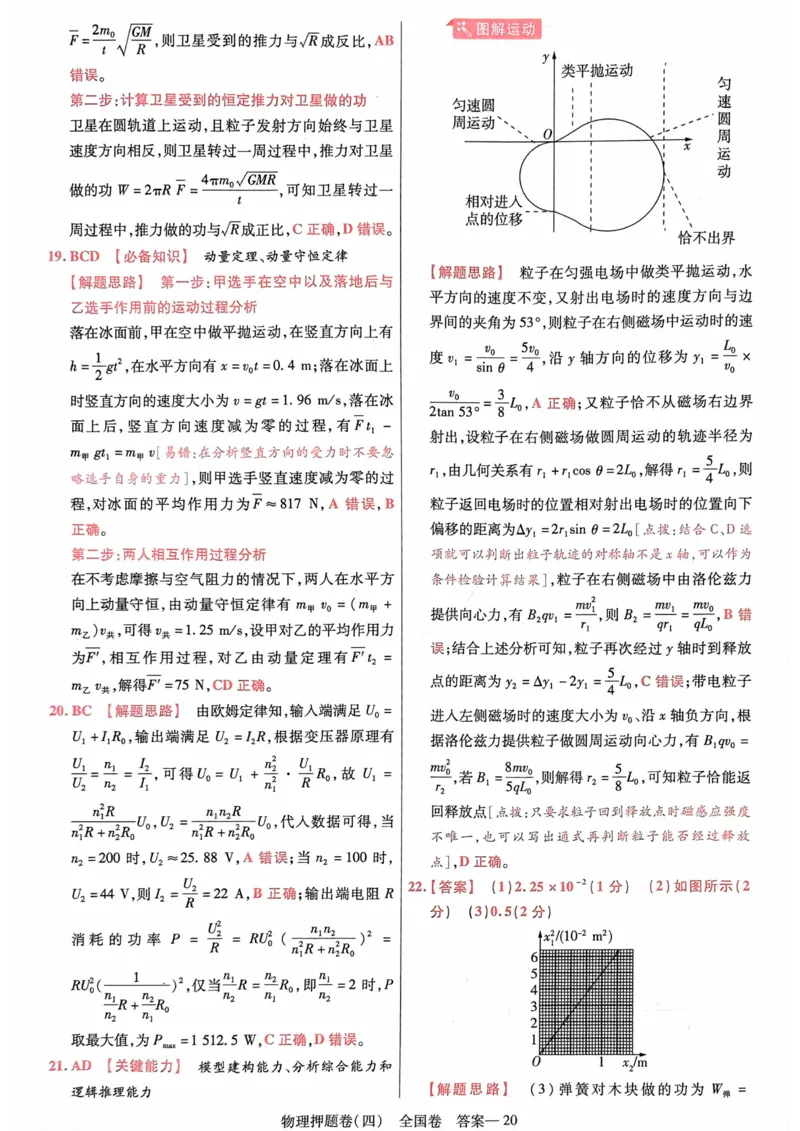 F̄=2m₀/t √(GM/R),则卫星受到的推力与√R成反比,AB
错误。
第二步:计算卫星受到的恒定推力对卫星做的功
卫星在圆轨道上运动,且粒子发射方向始终与卫星
速度方向相反,则卫星转过一周过程中,推力对卫星
做的功 W=2πR F̄=4πm₀√(GMR)/t,可知卫星转过一
周过程中,推力做的功与√R成正比,C正确,D错误。
19.BCD 【必备知识】 动量定理、动量守恒定律
【解题思路】 第一步:甲选手在空中以及落地后与
乙选手作用前的运动过程分析
落在冰面前,甲在空中做平抛运动,在竖直方向上有
h=1/2 gt²,在水平方向有 x=v₀t=0.4 m;落在冰面上
时竖直方向的速度大小为 v=gt=1.96 m/s,落在冰
面上后,竖直方向速度减为零的过程,有F̄t₁-
m甲gt₁=m甲v[易错:在分析竖直方向的受力时不要忽
略选手自身的重力],则甲选手竖直速度减为零的过
程,对冰面的平均作用力为F̄≈817 N,A 错误,B
正确。
第二步:两人相互作用过程分析
在不考虑摩擦与空气阻力的情况下,两人在水平方
向上动量守恒,由动量守恒定律有 m甲v₀=(m甲+
m乙)v共,可得v共=1.25 m/s,设甲对乙的平均作用力
为F̄′,相互作用过程,对乙由动量定理有F̄′t₂=
m乙v共,解得F̄′=75 N,CD正确。
20.BC 【解题思路】 由欧姆定律知,输入端满足U₀=
U₁+I₁R₀,输出端满足U₂=I₂R,根据变压器原理有
U₁/U₂=n₁/n₂=I₂/I₁,可得U₀=U₁+n₂²/n₁²·U₁/R R₀,故 U₁=
n₁²R/(n₁²R+n₂²R₀) U₀,U₂=n₁n₂R/(n₁²R+n₂²R₀) U₀,代入数据可得,当
n₂=200时,U₂≈25.88 V,A 错误;当n₂=100时,
U₂=44 V,则I₂=U₂/R=22 A,B正确;输出端电阻R
消耗的功率 P=U₂²/R=RU₀²(n₁n₂/(n₁²R+n₂²R₀))²=
RU₀²(1/(n₁/n₂ R+n₂/n₁ R₀))²,仅当n₁/n₂ R=n₂/n₁ R₀,即n₁/n₂=2时,P
取最大值,为Pmax=1 512.5 W,C正确,D错误。
21.AD 【关键能力】 模型建构能力、分析综合能力和
逻辑推理能力
图解运动
y
类平抛运动
匀速圆
周运动
匀速圆周运动
O
x
相对进入
点的位移
恰不出界
【解题思路】 粒子在匀强电场中做类平抛运动,水
平方向的速度不变,又射出电场时的速度方向与边
界间的夹角为53°,则粒子在右侧磁场中运动时的速
度v₁=v₀/sin θ=5v₀/4,沿y轴方向的位移为y₁=L₀/v₀×
v₀/(2tan 53°)=3/8 L₀,A正确;又粒子恰不从磁场右边界
射出,设粒子在右侧磁场做圆周运动的轨迹半径为
r₁,由几何关系有r₁+r₁cos θ=2L₀,解得r₁=5/4 L₀,则
粒子返回电场时的位置相对射出电场时的位置向下
偏移的距离为Δy₁=2r₁sin θ=2L₀[点拨:结合C、D选
项就可以判断出粒子轨迹的对称轴不是x轴,可以作为
条件检验计算结果],粒子在右侧磁场中由洛伦兹力
提供向心力,有B₂qv₁=mv₁²/r₁,则B₂=mv₁/qr₁=mv₀/qL₀,B错
误;结合上述分析可知,粒子再次经过y轴时到释放
点的距离为y₂=Δy₁-2y₁=5/4 L₀,C错误;带电粒子
进入左侧磁场时的速度大小为v₀、沿x轴负方向,根
据洛伦兹力提供粒子做圆周运动向心力,有B₁qv₀=
mv₀²/r₂,若B₁=8mv₀/5qL₀,则解得r₂=5/8 L₀,可知粒子恰能返
回释放点[点拨:只要求粒子回到释放点时磁感应强度
不唯一,也可以写出通式再判断粒子能否经过释放
点],D正确。
22.【答案】 (1)2.25×10⁻²(1分) (2)如图所示(2
分) (3)0.5(2分)
x₁²/(10⁻² m²)
6
5
4
3
2
1
O 1 x₂/m
【解题思路】 (3)弹簧对木块做的功为 W弹=
物理押题卷(四) 全国卷 答案—20